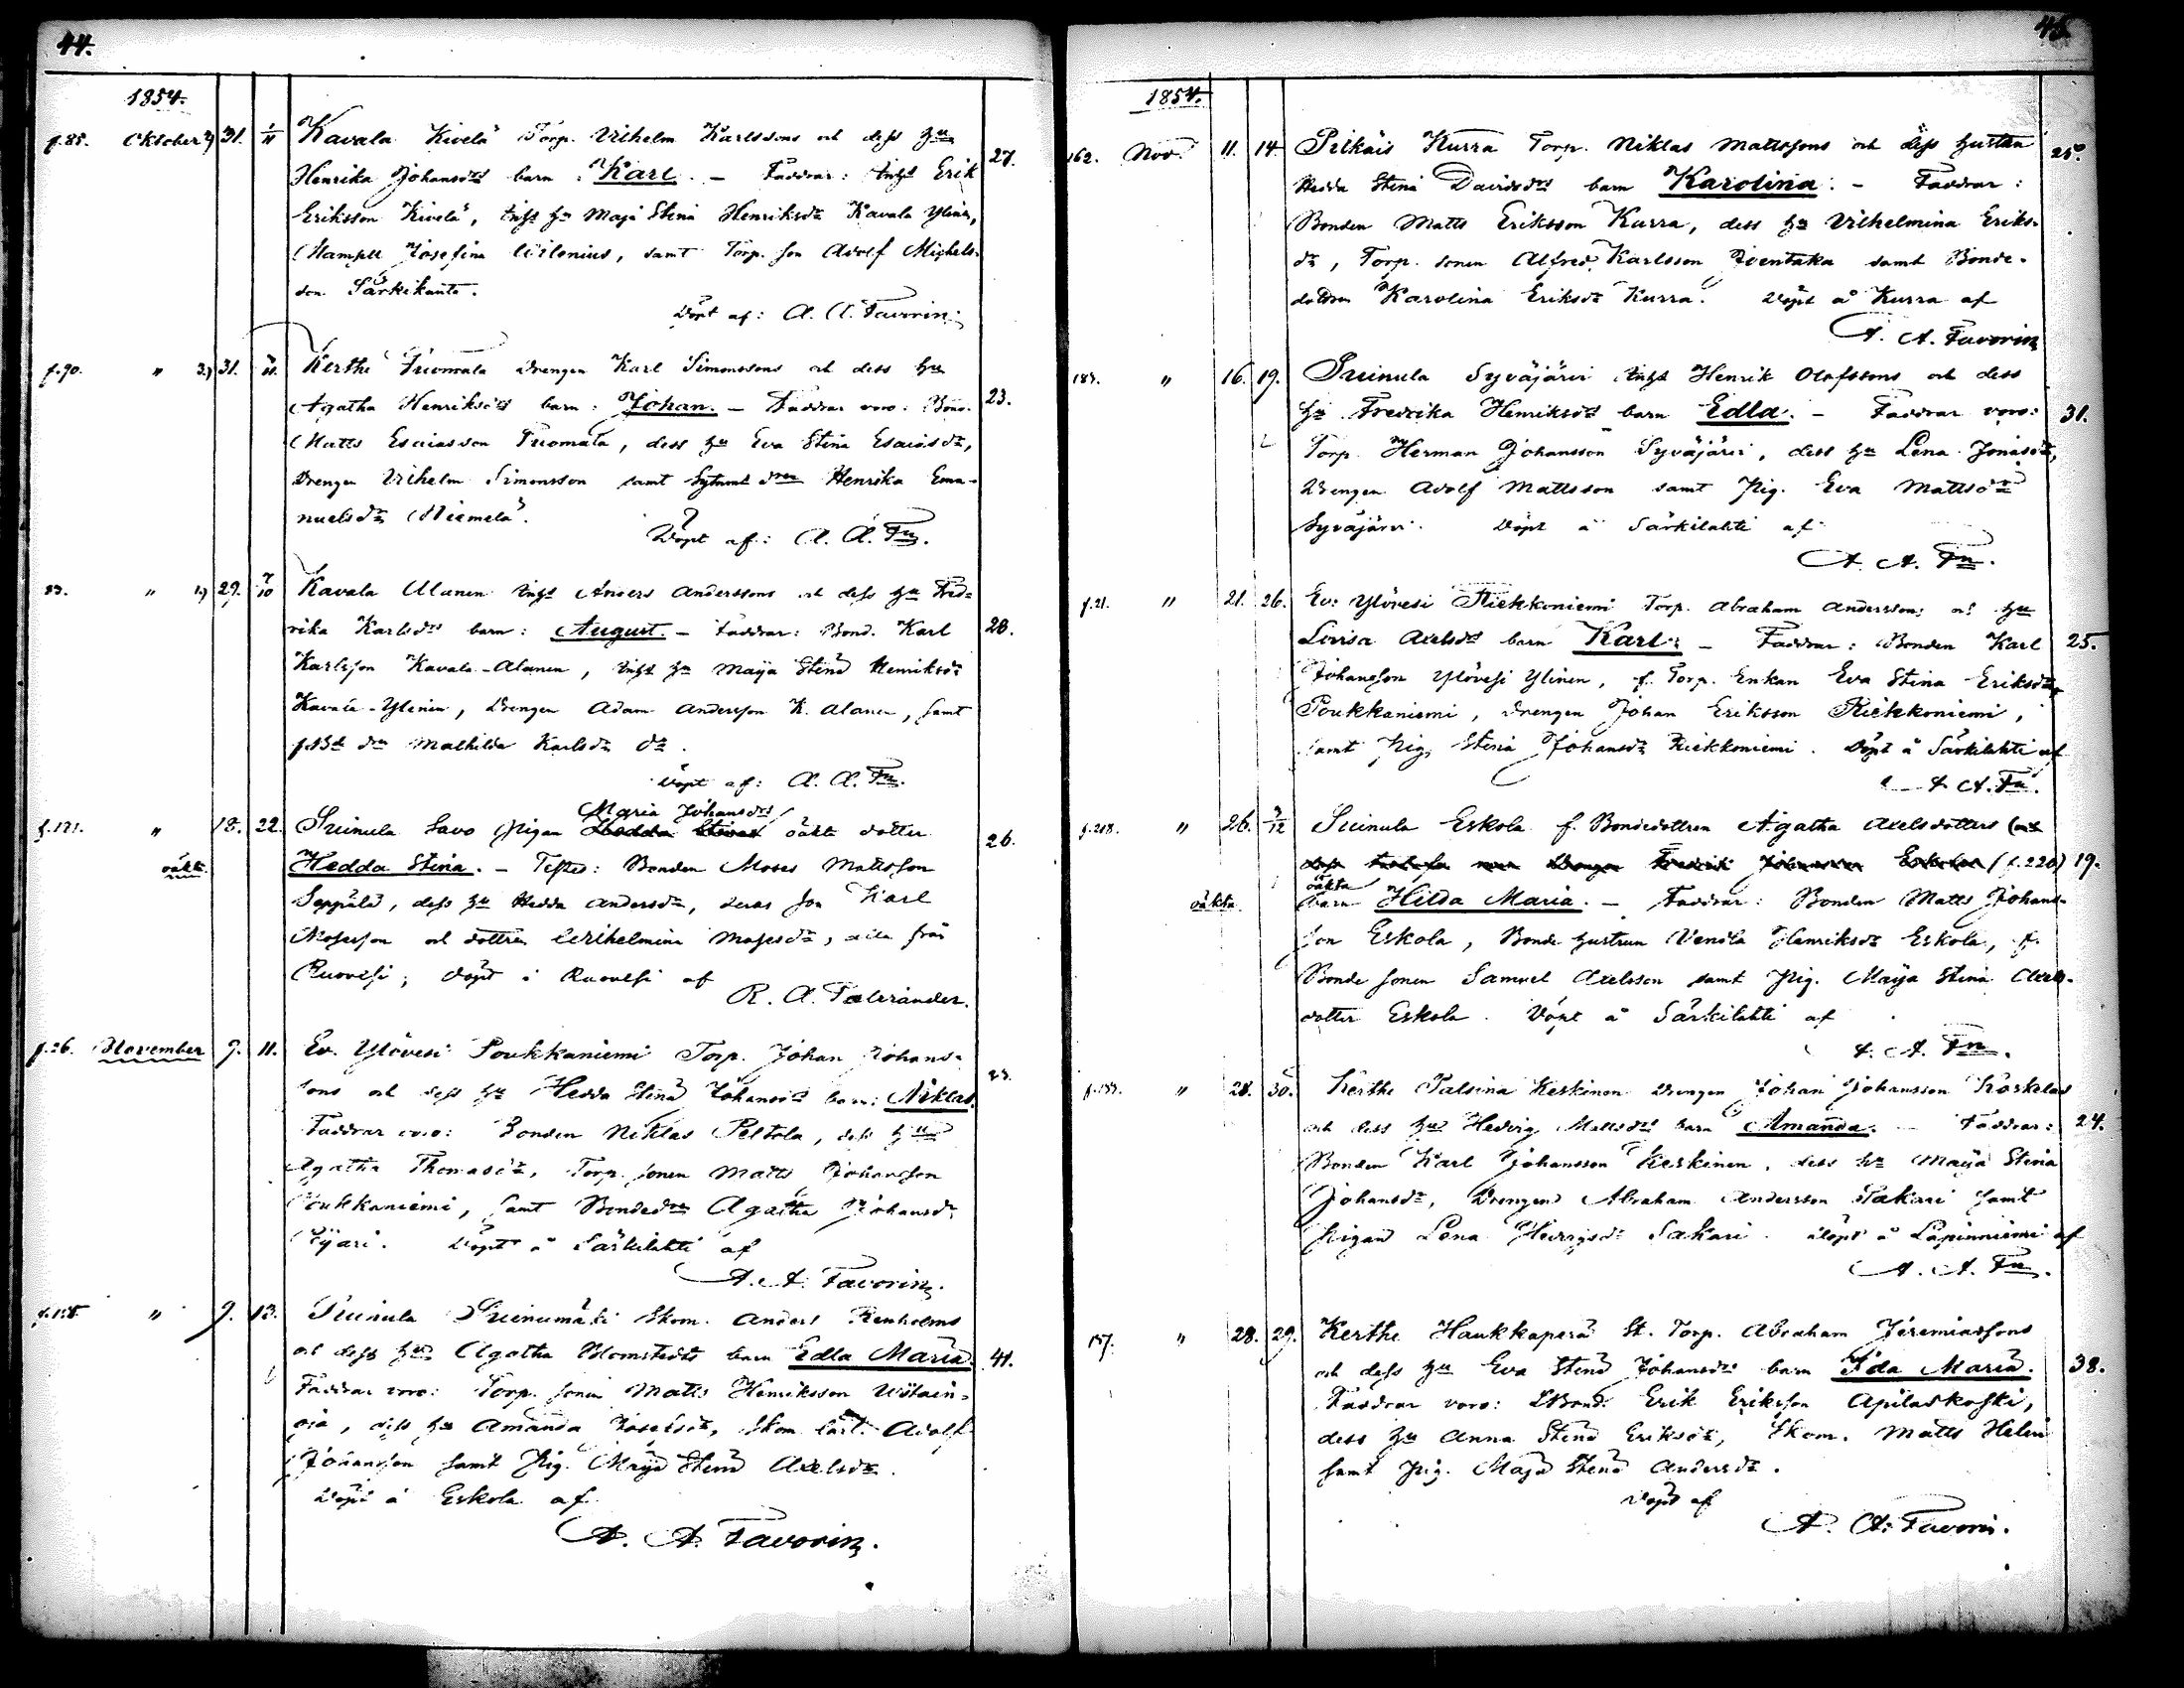 44.
1854.
f.85. Oktober 31. 1/11 Kavala Kivelä Torp. Vilhelm Karlssons och dess hu
Henrika Johansdrs barn: Karl. — Faddrar: Inhs Erik 27.
Eriksson Kivelä, Inhs hu Maja Stina Henriksdr Kavala Ylinen,
Mamsell Josefina Wilenius, samt Torp. son Adolf Michels-
son Särkikanta.
Döpt af: A. A. Favorin
f.90. " 31. Kerthe Tuomala Drengen Karl Simonssons och dess hu
Agatha Henriksdrs barn: Johan. — Faddrar voro: Bond. 23.
Matts Esaiasson Tuomala, dess hu Eva Stina Esaiasdr,
Drengen Vilhelm Simonsson samt Sytnms drn Henrika Ema-
nuelsdr Niemelä.
Döpt af: A. A. Fn.
" 29. Kavala Alanen Inhs Anders Anderssons och dess hu Fred-
rika Karlsdrs barn: August. — Faddrar: Bond. Karl 28.
Karlsson Kavala-Alanen, Inhs hu Maija Stina Henriksdr
Kavala-Ylinen, Drengen Adam Andersson K. Alanen, samt
f.Bd dn Mathilda Karlsdr do.
Döpt af: A. A. Fn.
Maria Johansdrs
f.121. " 18. 22. Suinula Savo Pigan Hedda Stinas oäkta dotter 26.
oäkta Hedda Stina. — Testes: Bonden Moses Mattsson
Seppälä, dess hu Hedda Andersdr, deras son Karl
Mosesson och dottren Wilhelmina Mosesdr, alla från
Ruovesi; döpt i Ruovesi af
R. A. Taleránder.
f.26. November 9. 11. Ev. Ylövesi Poukkaniemi Torp. Johan Johans-
sons och dess hu Hedda Stina Johansdrs barn: Niklas. 23.
Faddrar voro: Bonden Niklas Peltola, dess hu
Agatha Thomasdr, Torp. sonen Matts Johansson
Poukkaniemi, samt Bondedrn Agatha Johansdr
Eijari. Döpt å Särkilahti af
A. A. Favorin.
" 9. 13. Suinula Suinumäki Skom. Anders Renholms
och dess hu Agatha Blomstedts barn Edla Maria. 41.
Faddrar voro: Torp. sonen Matts Henriksson
oja, dess hu Amanda Josefsdr, Skom. lärl. Adolf
Johansson samt Pig. Maija Stina Axelsdr.
Döpt å Eskola af
A. A. Favorin.
1854.
162. Nov. 11. 14. Pitkäis Kurra Torp. Niklas Mattssons och dess hustru 25.
Hedda Stina Davidsdrs barn Karolina. — Faddrar:
Bonden Matts Eriksson Kurra, dess hu Vilhelmina Eriks-
dr, Torp. sonen Alfred Karlsson samt Bonde-
dottren Karolina Eriksdr Kurra. Döpt å Kurra af
A. A. Favorin
189. " 16. 19. Suinula Syväjärvi Inhs Henrik Olofssons och dess
hu Fredrika Henriksdrs barn Edla. — Faddrar voro: 31.
Torp. Herman Johansson Syväjärvi, dess hu Lena Jonasdr,
Drengen Adolf Mattsson samt Pig. Eva Mattsdr
Syväjärvi. Döpt å Särkilahti af
A. A. Fn.
f.21. " 21. 26. Ev: Ylövesi Riekkoniemi Torp. Abraham Anderssons och hu
Lovisa Axelsdrs barn Karl: — Faddrar: Bonden Karl 25.
Johansson Ylövesi Ylinen, f. Torp. Enkan Eva Stina Eriksdr
Poukkaniemi, Drengen Johan Eriksson Riekkoniemi,
samt Pig. Stina Johansdr Riekkoniemi. Döpt å Särkilahti af
A. A. Fn.
f.218. " 26. 3/12 Suinula Eskola f. Bondedottren Agatha Axelsdotters
(f.220) 19.
oäkta barn Hilda Maria. — Faddrar: Bonden Matts Johans-
oäkta
son Eskola, Bonde hustrun Vendla Henriksdr Eskola, f.
Bonde sonen Samuel Axelsson samt Pig. Maija Stina Axels-
dotter Eskola. Döpt å Särkilahti af
A. A. Fn.
" 28. 30. Kerthe Talsina Keskinen Drengen Johan Johansson Koskelas
och dess hu Hedvig Mattsdrs barn Amanda. — Faddrar: 24.
Bonden Karl Johansson Keskinen, dess hu Maija Stina
Johansdr, Drengen Abraham Andersson Sakari samt
Pigan Lena Sakari. Döpt å Lapinniemi af
A. A. Fn.
157. " 28. 29. Kerthe Haukkaperä St. Torp. Abraham Jeremiassons
och dess hu Eva Stina Johansdrs barn Ida Maria. 38.
Faddrar voro: LBond. Erik Eriksson Apilaskoski,
dess hu Anna Stina Eriksdr, Skom. Matts Helin
samt Pig. Maja Stina Andersdr.
Döpt af
A. A. Favorin.